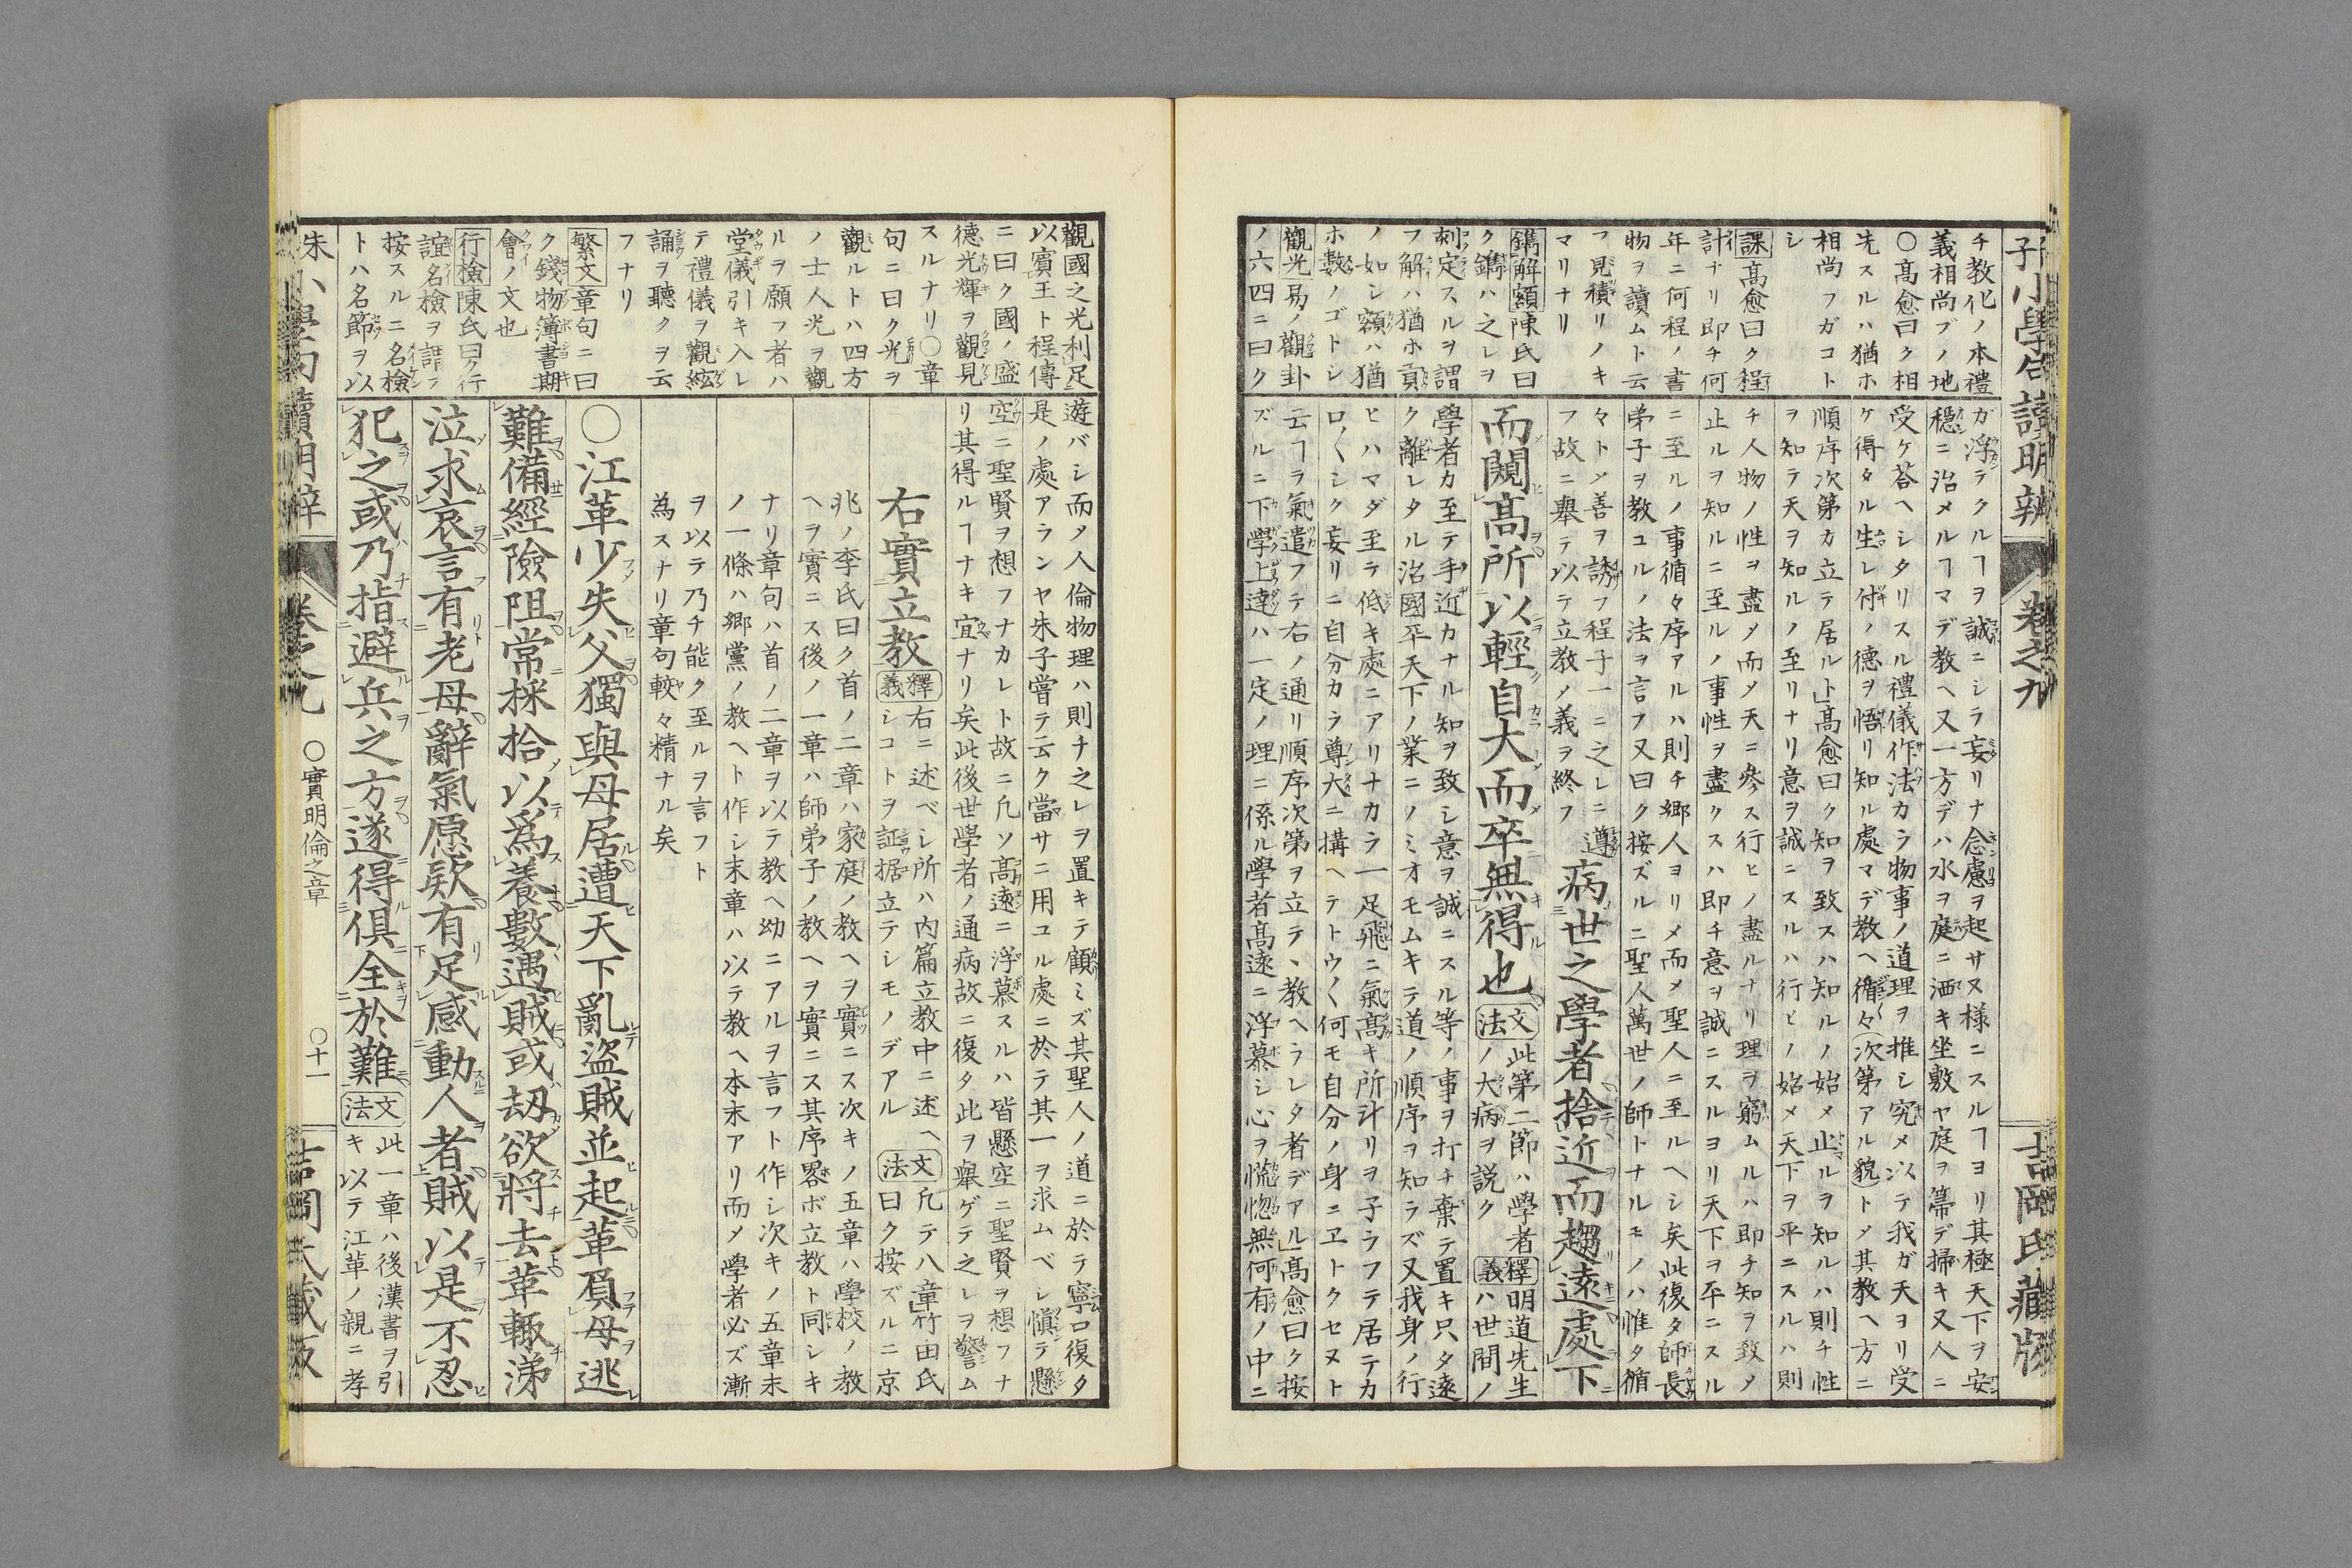 チ教化ノ本禮
義相尚ブノ地
〇髙愈曰ク相
先スルハ猶ホ
相尚フガコト
シ
課髙愈曰ク程
計ナリ即チ何
年ニ何程ノ書
物ヲ讀ムト云
フ見積リノキ
マリナリ
鐫解額陳氏曰
ク鐫ハ之レヲ
刻定スルヲ謂
フ解ハ猶ホ貢
ノ如シ額ハ猶
ホ數ノゴトシ
觀光易ノ觀卦
ノ六四ニ曰ク
ガ浮ラクルヿヲ誠ニシラ妄リナ念慮ヲ起サヌ樣ニスルヿヨリ其極天下ヲ安
穩ニ治メルヿマデ教ヘ又一方デハ水ヲ庭ニ洒キ坐敷ヤ庭ヲ箒デ掃キ又人ニ
受ケ荅ヘシタリスル禮儀作法カラ物事ノ道理ヲ推シ究メ以テ我ガ天ヨリ受
ケ得タル生レ付ノ德ヲ悟リ知ル處マデ教ヘ循々(次第アル貌)トメ其教ヘ方ニ
順序次第カ立テ居ル卜」髙愈曰ク知ヲ致スハ知ルノ始メ止ルヲ知ルハ則チ性
ヲ知テ天ヲ知ルノ至リナリ意ヲ誠ニスルハ行ヒノ始メ天下ヲ平ニスルハ則
チ人物ノ性ヲ盡メ而メ天ニ參ス行ヒノ盡ルナリ理ヲ窮ムルハ即チ知ヲ致メ
止ルヲ知ルニ至ルノ事性ヲ盡クスハ即チ意ヲ誠ニスルヨリ天下ヲ平ニスル
ニ至ルノ事循々序アルハ則チ鄕人ヨリメ而メ聖人ニ至ルヘシ矣此復タ師長
弟子ヲ教ユルノ法ヲ言フ又曰ク按ズルニ聖人萬世ノ師トナルモノハ惟タ循
々トメ善ヲ誘フ程子一ニ之レニ遵
フ故ニ舉テ以テ立教ノ義ヲ終フ
病世之學者捨近而趨遠處下
而闚髙所以輕自大而卒無得也
文法 此第二節ハ學者
ノ大病ヲ説ク
釋義 明道先生
ハ世間ノ
學者カ至テ手近カナル知ヲ致シ意ヲ誠ニスル等ノ事ヲ打チ棄テ置キ只タ遠
ク離レタル治國平天下ノ業ニノミオモムキテ道ノ順序ヲ知ラズ又我身ノ行
ヒハマダ至テ低キ處ニアリナカラ一足飛ニ氣髙キ所計リヲ子ラフテ居テカ
ロ〱シク妄リニ自分カラ尊大ニ搆ヘテトウ〱何モ自分ノ身ニヱトクセヌト
云ヿヲ氣遣フテ右ノ通リ順序次第ヲ立テ、教ヘラレタ者デアル」髙愈曰ク按
ズルニ下學上達ハ一定ノ理ニ係ル學者髙遠ニ浮慕シ心ヲ慌惚無何有ノ中ニ
卷之九
觀國之光利足
以賓王ト程傳
ニ曰ク國ノ盛
德光輝ヲ觀見
スルナリ〇章
句ニ曰ク光ヲ
觀ルトハ四方
ノ士人光ヲ觀
ルヲ願フ者ハ
堂儀引キ入レ
テ禮儀ヲ觀絃
誦ヲ聽クヲ云
フナリ
繁文章句ニ曰
ク錢物簿書期
會ノ文也
行檢陳氏曰ク行
誼名檢ヲ謂フ
按スルニ名檢
トハ名節ヲ以
遊バシ而メ人倫物理ハ則チ之レヲ置キテ顧ミズ其聖人ノ道ニ於テ寧ロ復タ
是ノ處アランヤ朱子嘗テ云ク當サニ用ユル處ニ於テ其一ヲ求ムベシ愼テ懸
空ニ聖賢ヲ想フナカレト故ニ凢ソ髙遠ニ浮慕スルハ皆懸空ニ聖賢ヲ想フナ
リ其得ルヿナキ宜ナリ矣此後世學者ノ通病故ニ復タ此ヲ舉ゲテ之レヲ警ム
右實立教
釋義 右ニ述ベシ所ハ内篇立教中ニ述ヘ
シコトヲ証据立テシモノデアル
文法 凢テ八章」竹由氏
曰ク按ズルニ京
兆ノ李氏曰ク首ノ二章ハ家庭ノ教ヘヲ實ニス次キノ五章ハ學校ノ教
ヘヲ實ニス後ノ一章ハ師弟子ノ教ヘヲ實ニス其序畧ボ立教ト同シキ
ナリ章句ハ首ノ二章ヲ以テ教ヘ幼ニアルヲ言フト作シ次キノ五章末
ノ一條ハ鄕黨ノ教ヘト作シ末章ハ以テ教ヘ本末アリ而メ學者必ズ漸
ヲ以テ乃チ能ク至ルヲ言フト
為スナリ章句較々精ナル矣
〇江革少失父獨與母居遭天下亂盜賊並起革負母逃
難備經險阻常採拾以爲養數遇賊或刼欲將去革輙涕
泣求哀言有老母辭氣愿欵有足感動人者賊以是不忍
犯之或乃指避兵之方遂得俱全於難
文法 此一章ハ後漢書ヲ引
キ以テ江革ノ親ニ孝
〇實明倫之章
〇十一